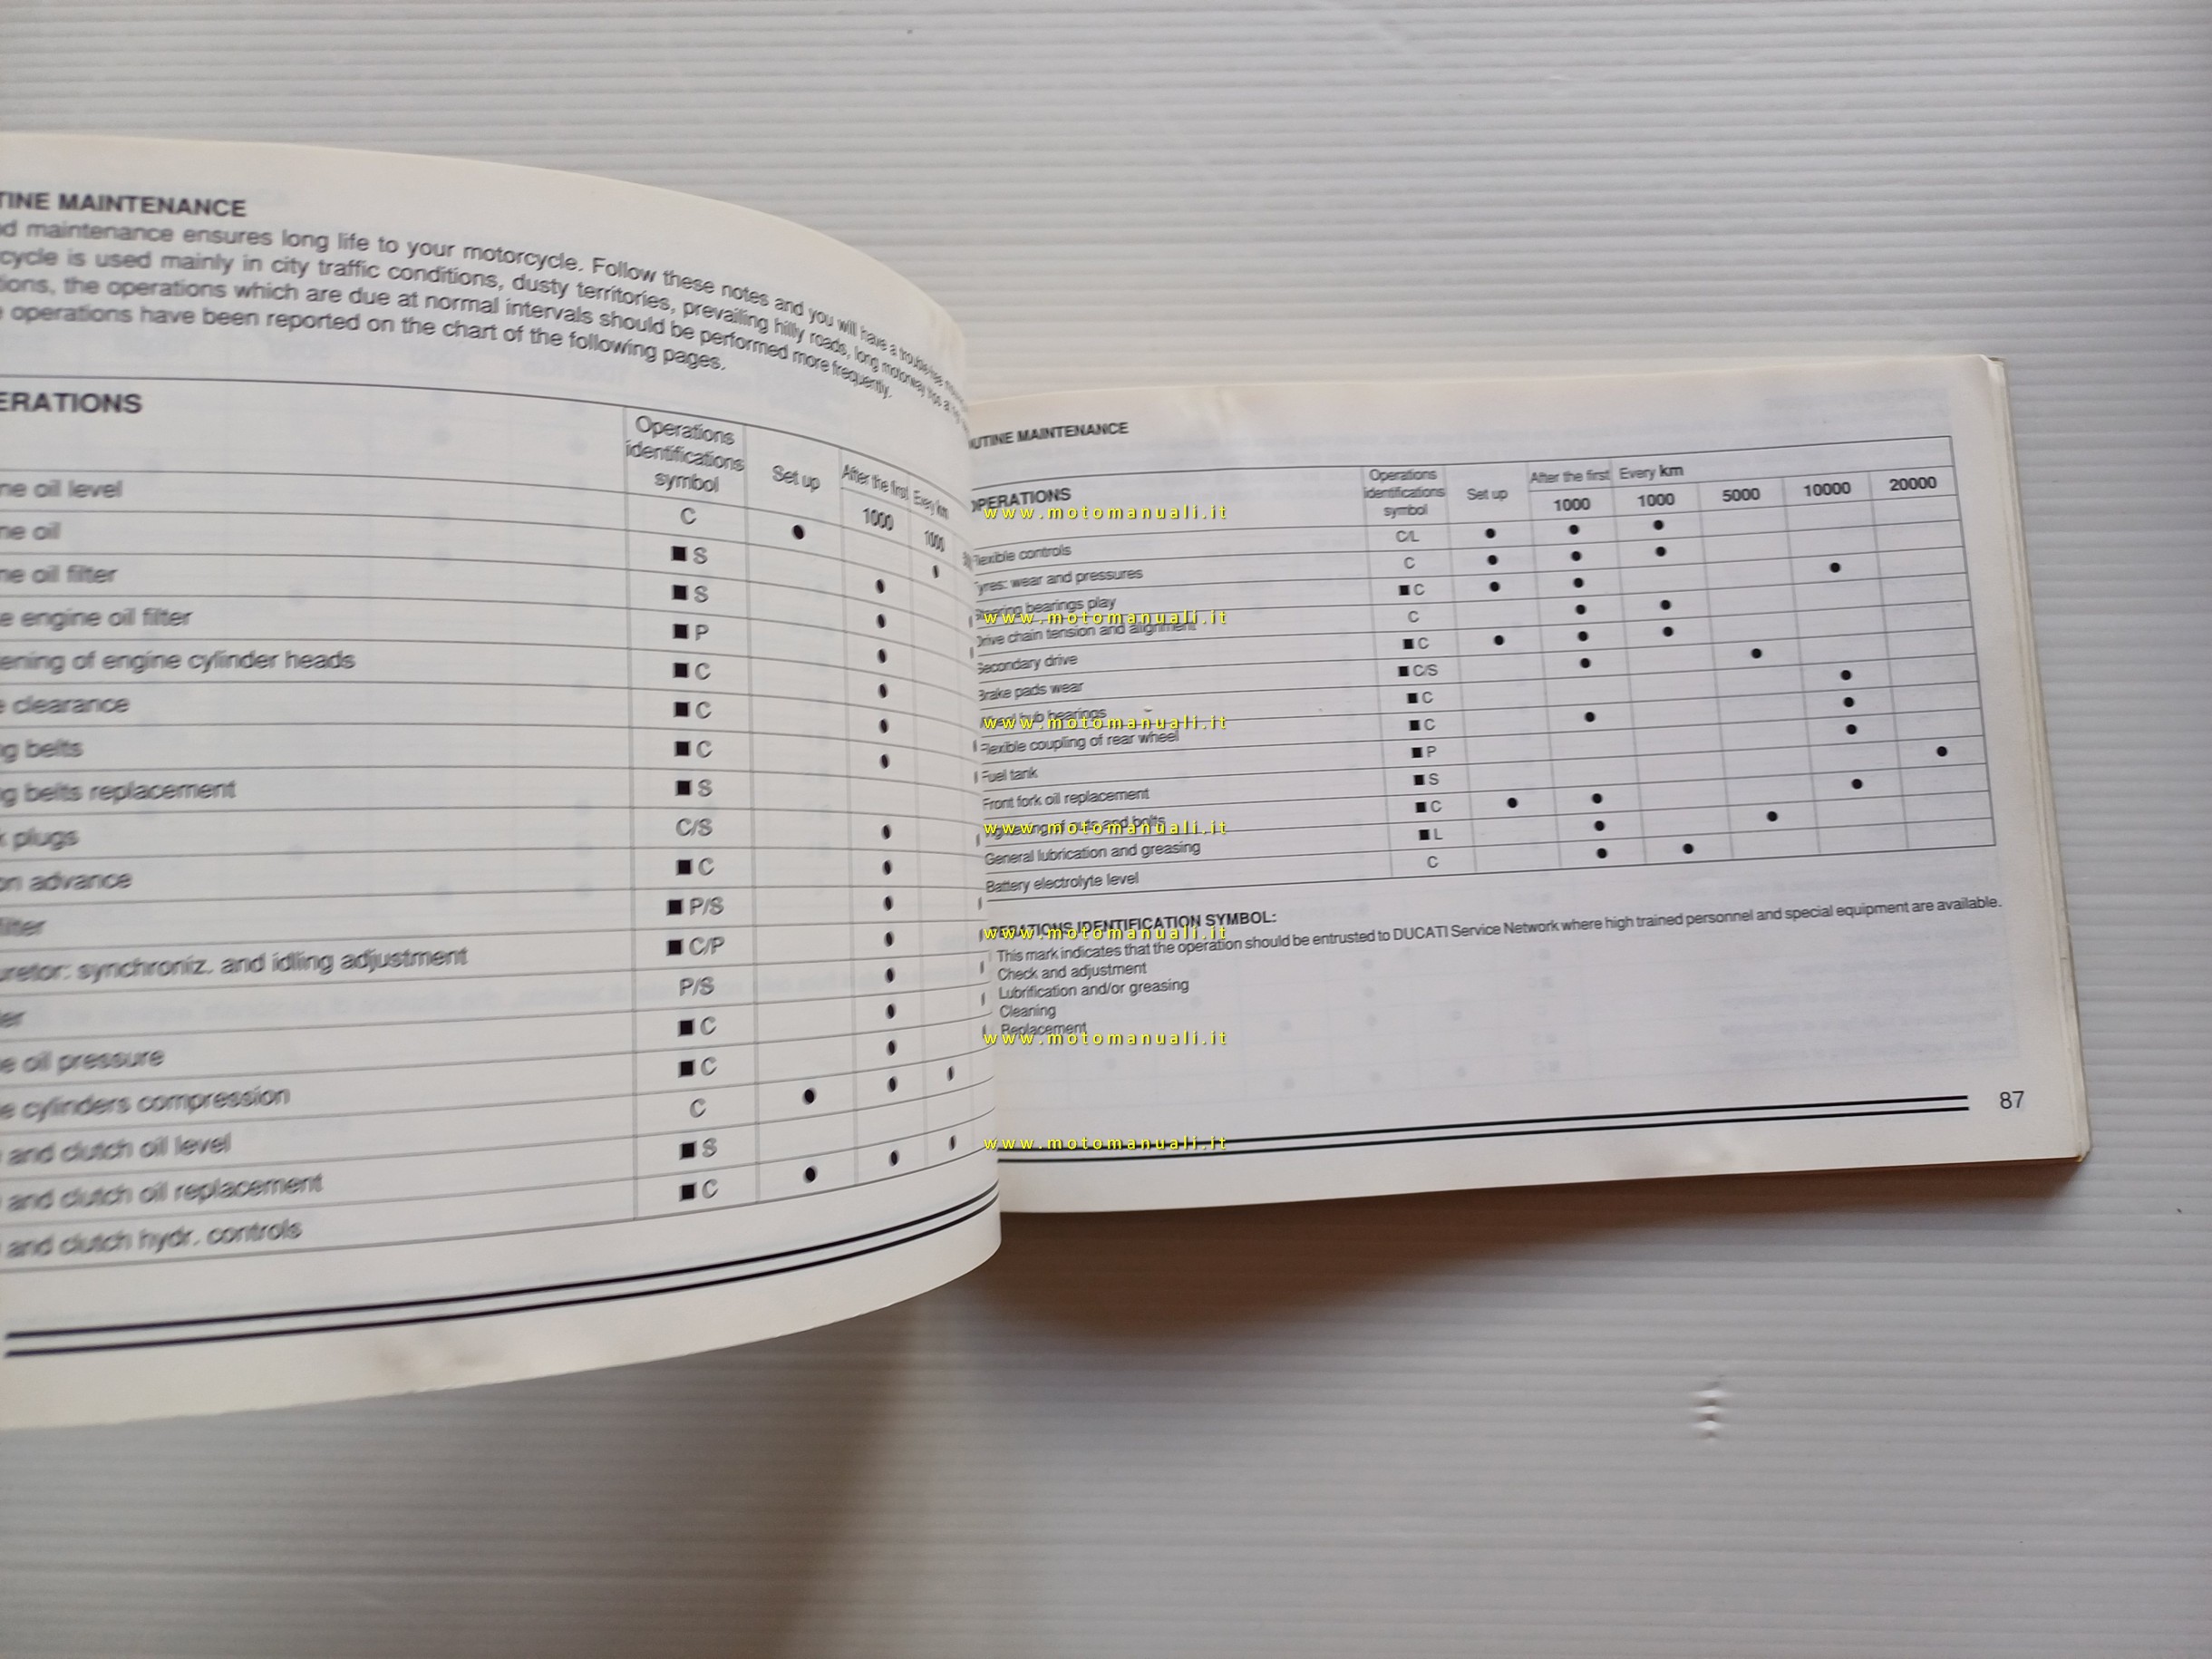 TINE MAINTENANCE
maintenance ensures long life to your motorcycle. Follow these notes and you will have a trouble-free
cycle is used mainly in city traffic conditions, dusty territories, prevailing hilly roads, long motorway trips
tions, the operations which are due at normal intervals should be performed more frequently.
operations have been reported on the chart of the following pages.
ERATIONS
Operations identifications symbol
Set up
After the first
Every km
1000
1000
ne oil level C ●
ne oil ■ S
ne oil filter ■ S
e engine oil filter ■ P
ening of engine cylinder heads ■ C
e clearance ■ C
g belts ■ C
g belts replacement ■ S
plugs C/S
on advance ■ C
filter ■ P/S
uretor: synchroniz. and idling adjustment ■ C/P
er P/S
e oil pressure ■ C
e cylinders compression ■ C
and clutch oil level C
and clutch oil replacement ■ S
and clutch hydr. controls ■ C
UTINE MAINTENANCE
OPERATIONS
Operations identifications symbol
Set up
After the first
Every km
1000
1000
5000
10000
20000
Flexible controls C/L ● ● ●
Tyres: wear and pressures C ● ● ●
Steering bearings play ■ C ● ● ●
Drive chain tension and alignment C ● ●
Secondary drive ■ C ● ● ●
Brake pads wear ■ C/S ● ●
hub bearings ■ C ●
Flexible coupling of rear wheel ■ C ● ●
Fuel tank ■ P ●
Front fork oil replacement ■ S ●
Tightening of nuts and bolts ■ C ● ● ●
General lubrication and greasing ■ L ● ●
Battery electrolyte level C ● ●
OPERATIONS IDENTIFICATION SYMBOL:
This mark indicates that the operation should be entrusted to DUCATI Service Network where high trained personnel and special equipment are available.
Check and adjustment
Lubrification and/or greasing
Cleaning
Replacement
87
www.motomanuali.it
www.motomanuali.it
www.motomanuali.it
www.motomanuali.it
www.motomanuali.it
www.motomanuali.it
www.motomanuali.it